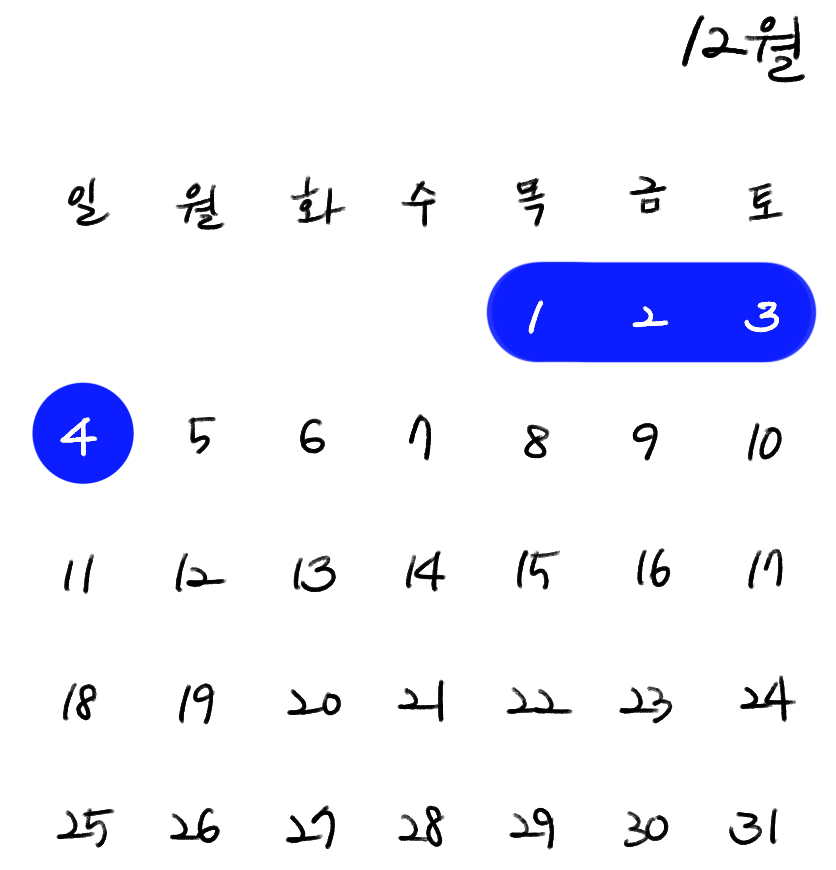 12월
일 월 화 수 목 금 토
1 2 3
4 5 6 7 8 9 10
11 12 13 14 15 16 17
18 19 20 21 22 23 24
25 26 27 28 29 30 31